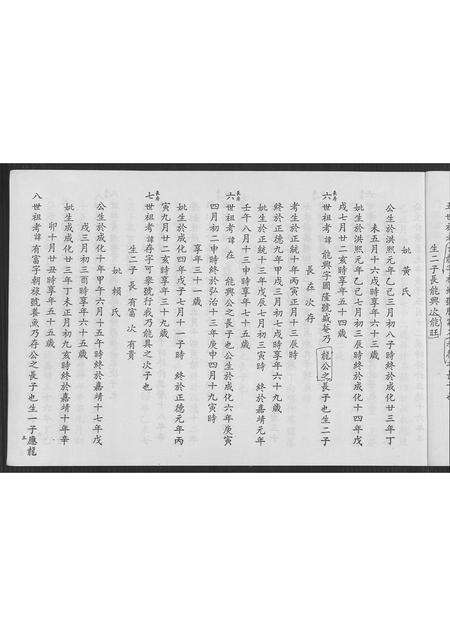 生二子長能興次能旺
妣黃氏
公生於洪熙元年乙巳三月初八子時終於成化廿三年丁
未五月十六戌時享年六十三歲
妣生於洪熙元年乙巳七月初三辰時終於成化十四年戊
戌七月廿二亥時享年五十四歲
長房
六世祖考諱能興字國隆號盛菴乃龍公之長子也生二子
長在次存
考生於正統十年丙寅正月十三辰時
終於正德九年甲戌三月初七戌時享年六十九歲
妣生於正統十三年戊辰七月初三寅時 終於嘉靖元年
壬午八月十三申時享年七十五歲
長房
六世祖考諱在 能興公之長子也公生於成化六年庚寅
四月初二申時終於弘治十三年庚申四月十九寅時
享年三十一歲
妣生於成化四年戊子七月十一子時 終於正德元年丙
寅九月廿二亥時享年三十九歲
長房
七世祖考諱存字可衆號行我乃能興之次子也
生二子長有富次有貴
妣賴氏
公生於成化十年甲午六月十五午時終於嘉靖十七年戊
戌三月初三酉時享年六十五歲
妣生成化廿三年丁未正月初九亥時終於嘉靖十年辛
卯十月廿丑時享年五十五歲
八世祖考諱有富字朝祿號養魚乃存公之長子也生一子應龍
五